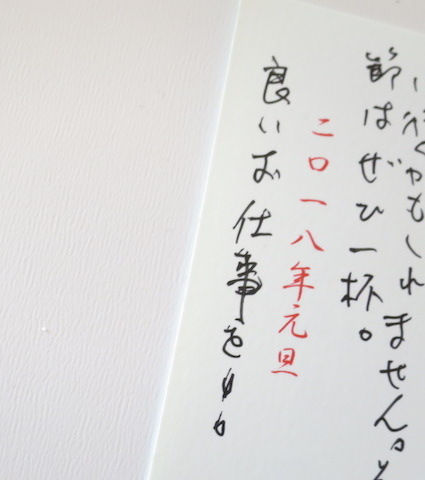 行くかもしれません。そ
節はぜひ一杯。
二〇一八年元旦
良いお仕事を!!